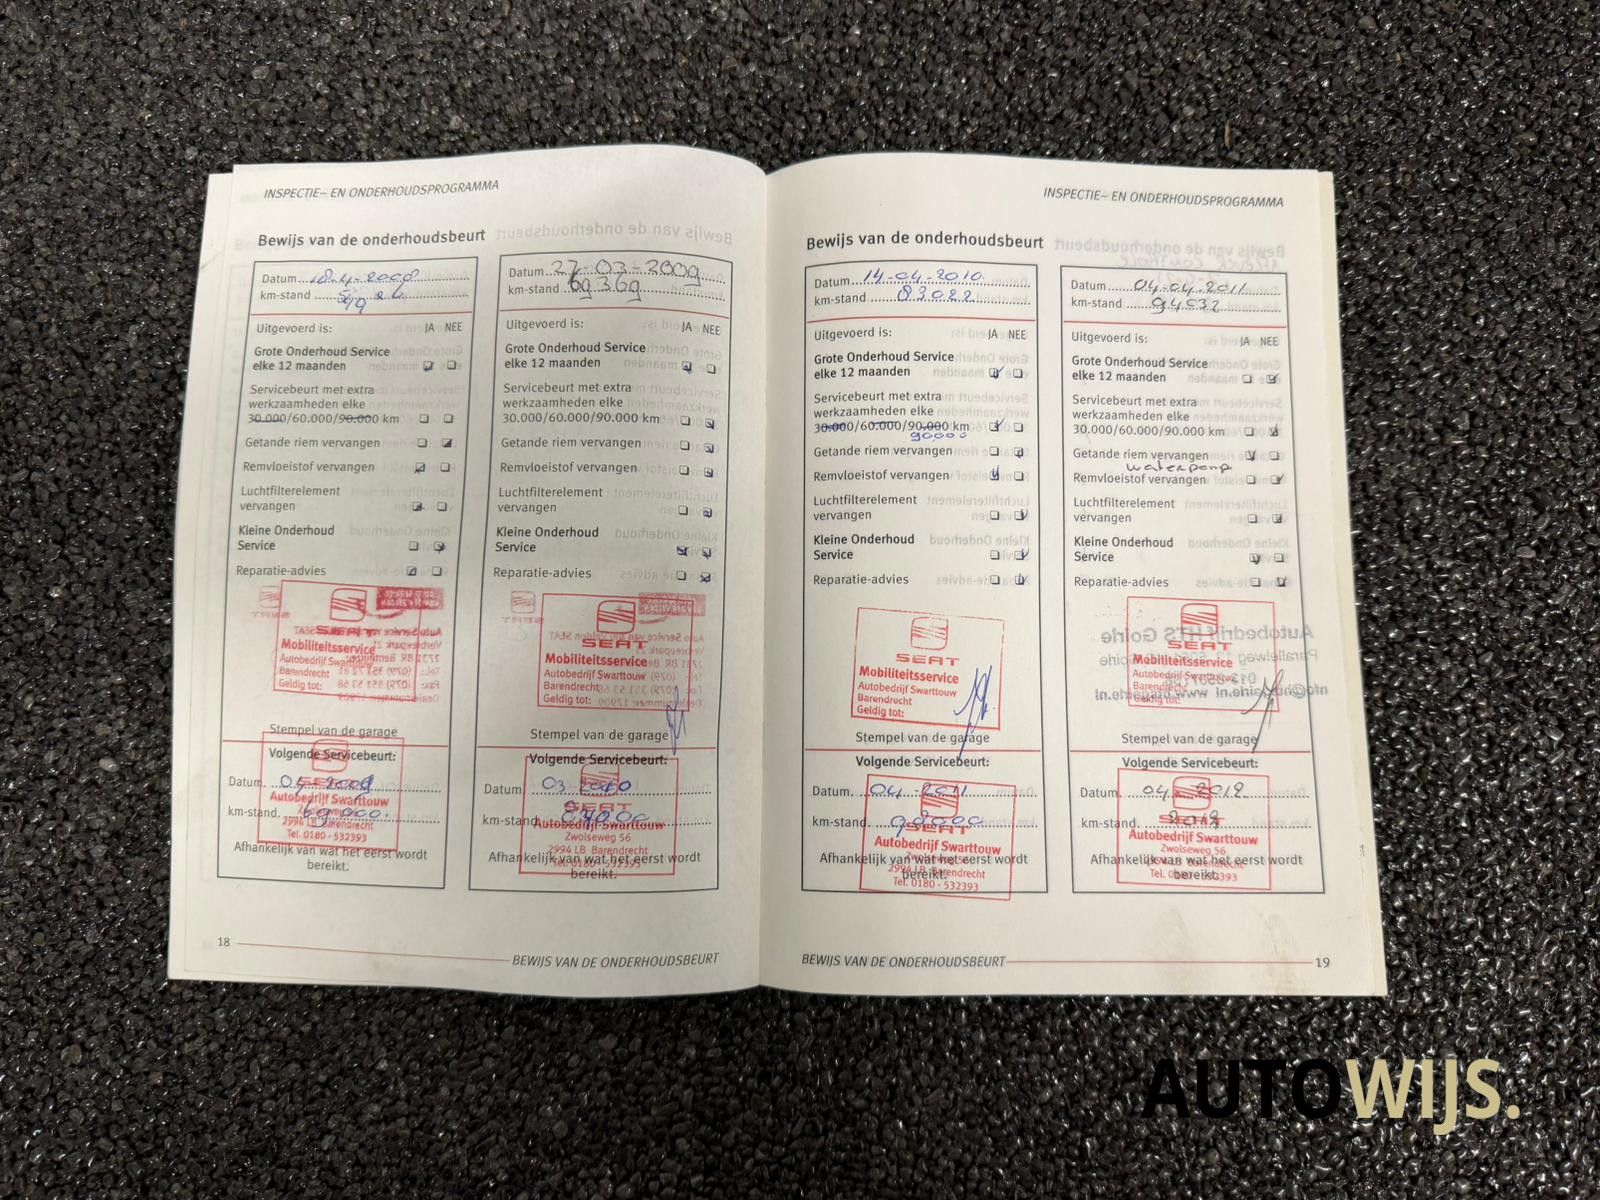 INSPECTIE- EN ONDERHOUDSPROGRAMMA
Bewijs van de onderhoudsbeurt
Datum 18-4-2008
km-stand
Uitgevoerd is: JA NEE
Grote Onderhoud Service
elke 12 maanden
Servicebeurt met extra
werkzaamheden elke
30.000/60.000/90.000 km
Getande riem vervangen
Remvloeistof vervangen
Luchtfilterelement
vervangen
Kleine Onderhoud
Service
Reparatie-advies
SEAT
Mobiliteitsservice
Autobedrijf Swarttouw
Barendrecht
Geldig tot:
Stempel van de garage
Volgende Servicebeurt:
Datum 04-2009
km-stand
Autobedrijf Swarttouw
2994 LB Barendrecht
Tel. 0180 - 532393
Afhankelijk van wat het eerst wordt
bereikt.
Datum 27-03-2009
km-stand 69369
Uitgevoerd is: JA NEE
Grote Onderhoud Service
elke 12 maanden
Servicebeurt met extra
werkzaamheden elke
30.000/60.000/90.000 km
Getande riem vervangen
Remvloeistof vervangen
Luchtfilterelement
vervangen
Kleine Onderhoud
Service
Reparatie-advies
SEAT
Mobiliteitsservice
Autobedrijf Swarttouw
Barendrecht
Geldig tot:
Stempel van de garage
Volgende Servicebeurt:
Datum 03-2010
km-stand
SEAT
Autobedrijf Swarttouw
Zwolseweg 56
2994 LB Barendrecht
Tel. 0180 - 532393
Afhankelijk van wat het eerst wordt
bereikt.
18
BEWIJS VAN DE ONDERHOUDSBEURT
INSPECTIE- EN ONDERHOUDSPROGRAMMA
Bewijs van de onderhoudsbeurt
Datum 14-04-2010
km-stand 83022
Uitgevoerd is: JA NEE
Grote Onderhoud Service
elke 12 maanden
Servicebeurt met extra
werkzaamheden elke
30.000/60.000/90.000 km
90000
Getande riem vervangen
Remvloeistof vervangen
Luchtfilterelement
vervangen
Kleine Onderhoud
Service
Reparatie-advies
SEAT
Mobiliteitsservice
Autobedrijf Swarttouw
Barendrecht
Geldig tot:
Stempel van de garage
Volgende Servicebeurt:
Datum. 04-2011
km-stand. 98000
SEAT
Autobedrijf Swarttouw
Zwolseweg 56
2994 LB Barendrecht
Tel. 0180 - 532393
Afhankelijk van wat het eerst wordt
bereikt.
Datum 04-04-2011
km-stand 94032
Uitgevoerd is: JA NEE
Grote Onderhoud Service
elke 12 maanden
Servicebeurt met extra
werkzaamheden elke
30.000/60.000/90.000 km
Getande riem vervangen
waterpomp
Remvloeistof vervangen
Luchtfilterelement
vervangen
Kleine Onderhoud
Service
Reparatie-advies
SEAT
Mobiliteitsservice
Autobedrijf Swarttouw
Barendrecht
Geldig tot:
Stempel van de garage
Volgende Servicebeurt:
Datum. 04-2012
km-stand.
SEAT
Autobedrijf Swarttouw
Zwolseweg 56
2994 LB Barendrecht
Tel. 0180 - 532393
Afhankelijk van wat het eerst wordt
bereikt.
BEWIJS VAN DE ONDERHOUDSBEURT
19
AUTOWIJS.